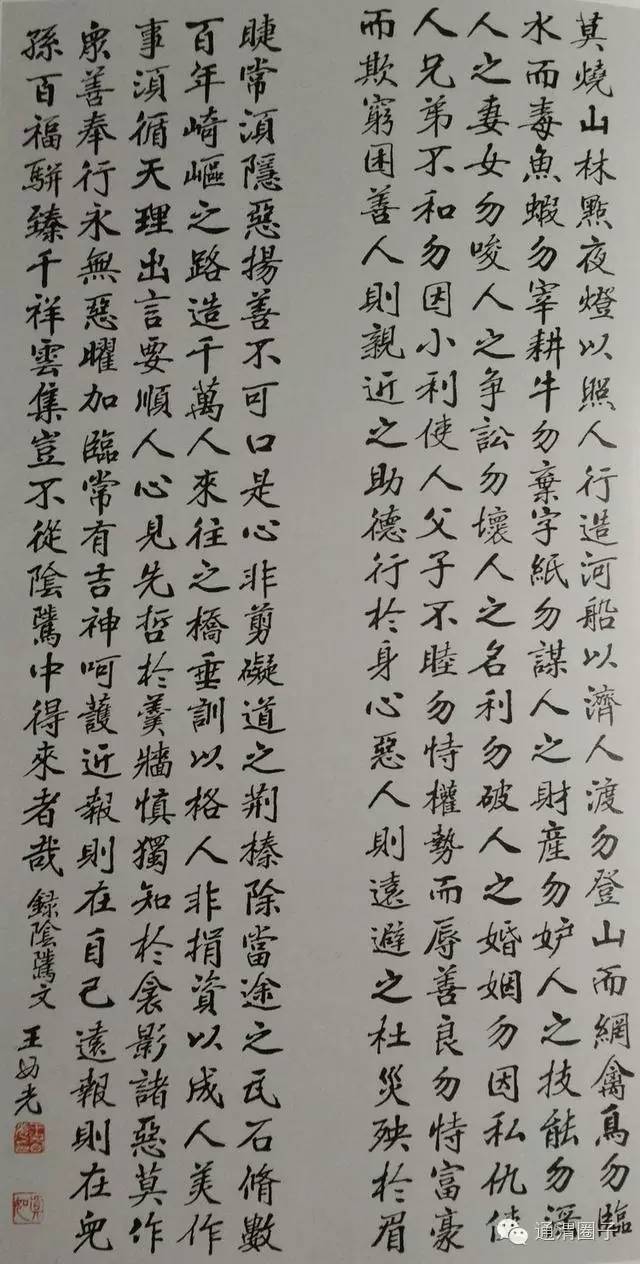 莫燒山林點夜燈以照人行造河船以濟人渡勿登山而網禽鳥勿臨
水而毒魚蝦勿宰耕牛勿棄字紙勿謀人之財產勿妒人之技能勿淫
人之妻女勿唆人之争訟勿壞人之名利勿破人之婚姻勿因私仇使
人兄弟不和勿因小利使人父子不睦勿恃權勢而辱善良勿恃富豪
而欺窮困善人則親近之助德行於身心惡人則遠避之杜災殃於眉
睫常湏隱惡揚善不可口是心非剪礙道之荆榛除當途之瓦石脩數
百年崎嶇之路造千萬人來往之橋垂訓以格人非捐資以成人美作
事湏循天理出言要順人心見先哲於羹牆慎獨知於衾影諸惡莫作
眾善奉行永無惡曜加臨常有吉神呵護近報則在自己遠報則在兒
孫百福駢臻千祥雲集豈不從陰騭中得來者哉 錄陰騭文 王光
通渭圈子